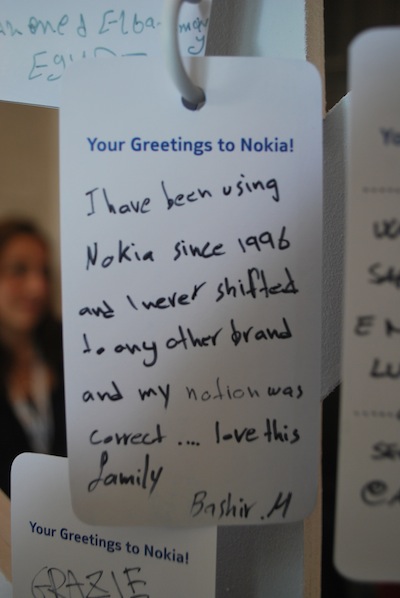 Egypt
Your Greetings to Nokia!
I have been using
Nokia since 1996
and I never shifted
to any other brand
and my notion was
correct .... love this
family
Bashir.M
Your Greetings to Nokia!
GRAZIE